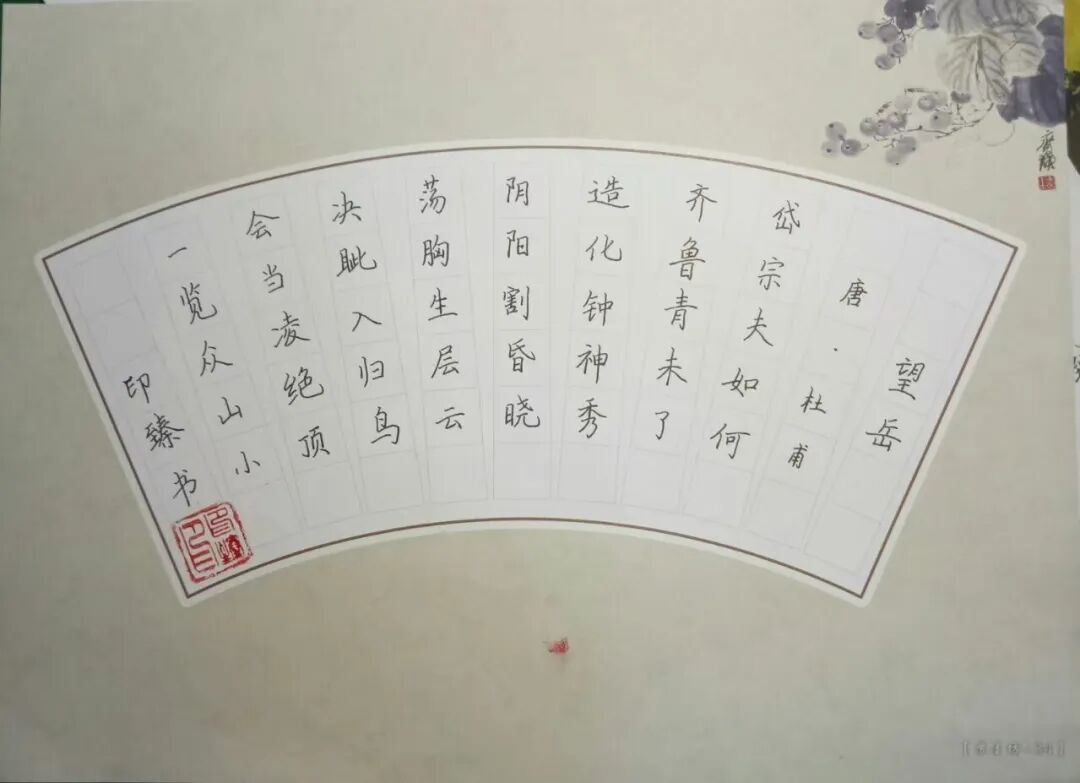 望岳
唐·杜甫
岱宗夫如何
齐鲁青未了
造化钟神秀
阴阳割昏晓
荡胸生层云
决眦入归鸟
会当凌绝顶
一览众山小
印臻书